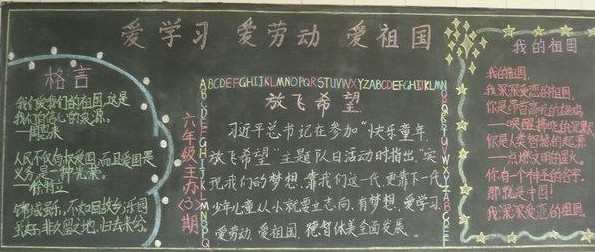 爱学习 爱劳动 爱祖国
格言
我们爱我们的祖国,这是
我们自信心的

—周恩来
人民不仅有权爱国,而且爱国是
义务,是一种光荣。
—徐特立
锦城虽乐,不如回故乡;乐园
虽好,非久留之地。归去来兮。
六年级主办(3)期
ABCDEFGHIJKLMNOPQRSTUVWXYZABCDEFGHIJKLMN
放飞希望
习近平总书记在参加“快乐童年,
放飞希望”主题队日活动时指出,“实
现我们的梦想,靠我们这一代,更靠下一代
少年儿童从小就要立志向,有梦想,爱学习,
爱劳动,爱祖国,德智体美全面发展。
我的祖国
我的祖国,
我深深爱恋的祖国。
你是
你是人类智慧的起源
—点燃文明的星火。
你有一个神圣的名字,
那就是中国!
我深深爱恋的祖国。